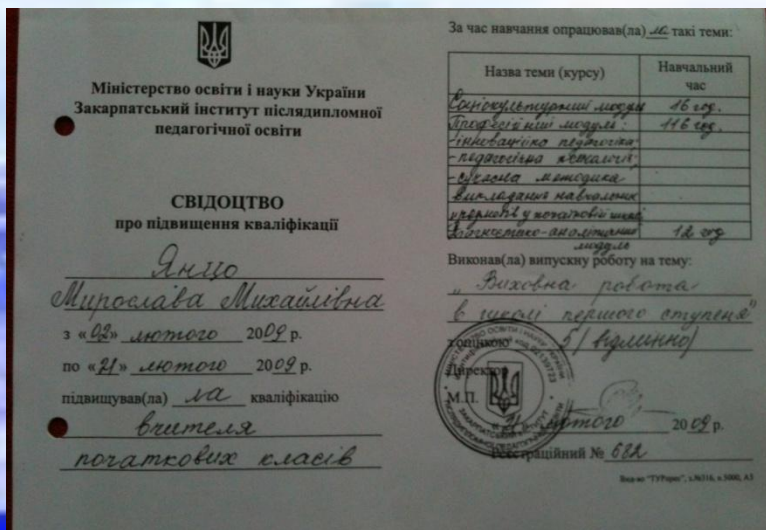 Міністерство освіти і науки України
Закарпатський інститут післядипломної
педагогічної освіти
СВІДОЦТВО
про підвищення кваліфікації
Янцо
Мирослава Михайлівна
з «02» лютого 2009 р.
по «21» лютого 2009 р.
підвищував(ла) ла кваліфікацію
вчителя
початкових класів
За час навчання опрацював(ла) ла такі теми:
Назва теми (курсу) Навчальний
час
Соціокультурний модуль 16 год.
Професійний модуль: 116 год.
- інноваційна педагогіка;
- педагогічна психологія;
- сучасна методика
викладання навчальних
предметів у початковій школі
Діагностико-аналітичний 12 год
модуль
Виконав(ла) випускну роботу на тему:
„ Виховна робота
в школі першого ступеня"
з оцінкою 5 (відмінно)
Директор
М.П.
лютого 2009 р.
Реєстраційний № 682